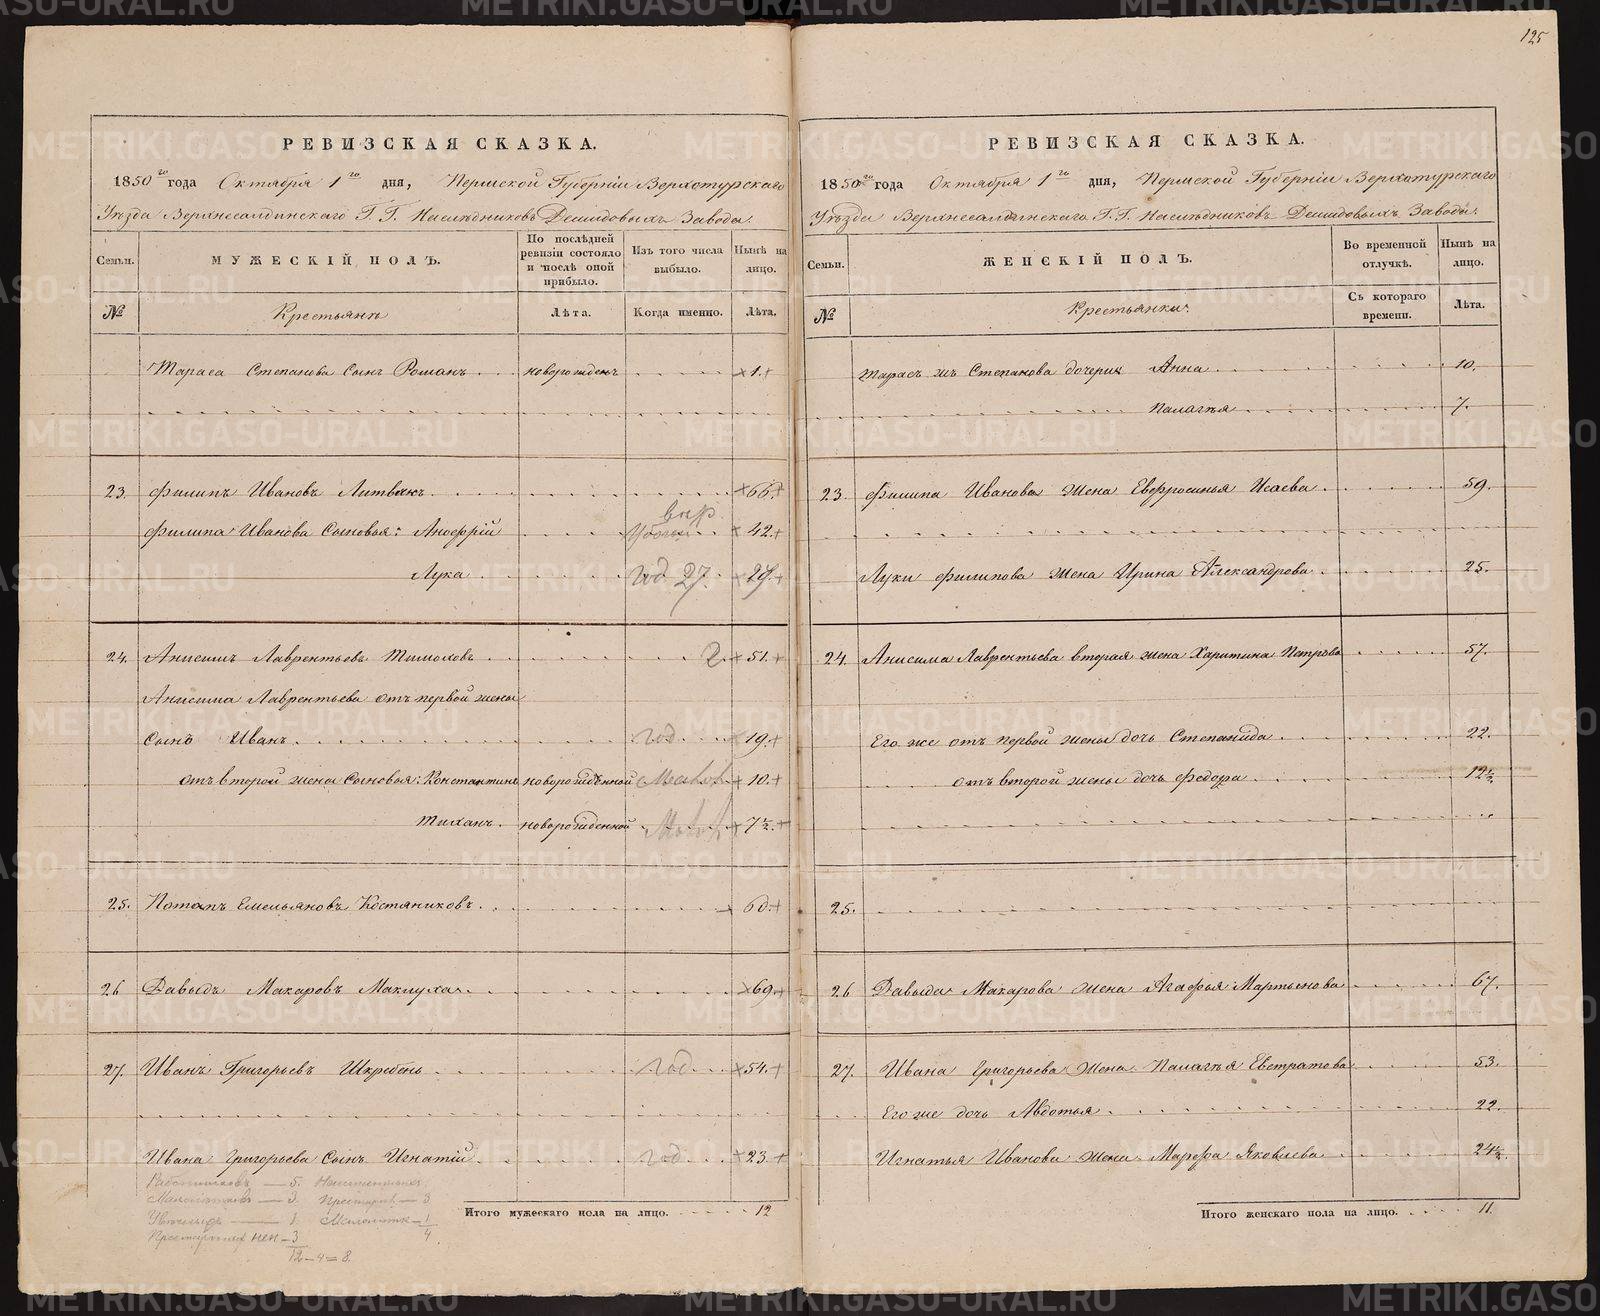 125
РЕВИЗСКАЯ СКАЗКА.
1850го года Октября 1го дня, Пермской Губерніи Верхотурскаго
Уѣзда Верхнесалдинскаго Г.Г. Наслѣдниковъ Демидовыхъ Завода.
Семьи. МУЖЕСКІЙ ПОЛЪ. По послѣдней ревизіи состояло и послѣ оной прибыло. Изъ того числа выбыло. Нынѣ на лицо.
№ Крестьянъ Лѣта. Когда именно. Лѣта.
Тараса Степанова Сынъ Романъ новорожденъ 1.
23. Филипъ Ивановъ Литвакъ 66.
Филипа Иванова Сыновья: Анофрій 42.
Лука год 27. 27.
24. Анисимъ Лаврентьевъ Тимоховъ 2. 51.
Анисима Лаврентьева отъ первой жены
Сынъ Иванъ год 19.
отъ второй жены Сыновья: Константинъ новорожденной Малол 10.
Тиханъ новорожденной Малол 7½
25. Потапъ Емельяновъ Костяниковъ 60.
26 Давыдъ Макаровъ Маклуха 69.
27. Иванъ Григорьевъ Шкребень год 54.
Ивана Григорьева Сынъ Игнатій год 23.
Работниковъ — 5.
Малолѣтковъ — 3. Престарѣл — 3
— 1 Малолѣтк — 1
Престарѣлых нен — 3 4
12 – 4 = 8.
Итого мужескаго пола на лицо. 12
РЕВИЗСКАЯ СКАЗКА.
1850го года Октября 1го дня, Пермской Губерніи Верхотурскаго
Уѣзда Верхнесалдинскаго Г.Г. Наслѣдниковъ Демидовыхъ Завода.
Семьи. ЖЕНСКІЙ ПОЛЪ. Во временной отлучкѣ. Нынѣ на лицо.
№ Крестьянки. Съ котораго времени. Лѣта.
Тараса жъ Степанова дочери Анна 10.
Палагѣя 7.
23. Филипа Иванова жена Ефросинья Исаева 59.
Луки Филипова жена Ирина Александрова 25.
24. Анисима Лаврентьева вторая жена Харитина Петрова 57.
Его же отъ первой жены дочь Степанида 22.
отъ второй жены дочь Федора 12½
25.
26 Давыда Макарова жена Агафья Мартынова 67.
27. Ивана Григорьева жена Палагѣя Евстратова 53.
Его же дочь Авдотья 22.
Игнатья Иванова жена Марфа Яковлева 24½
Итого женскаго пола на лицо. 11.
METRIKI.GASO-URAL.RU